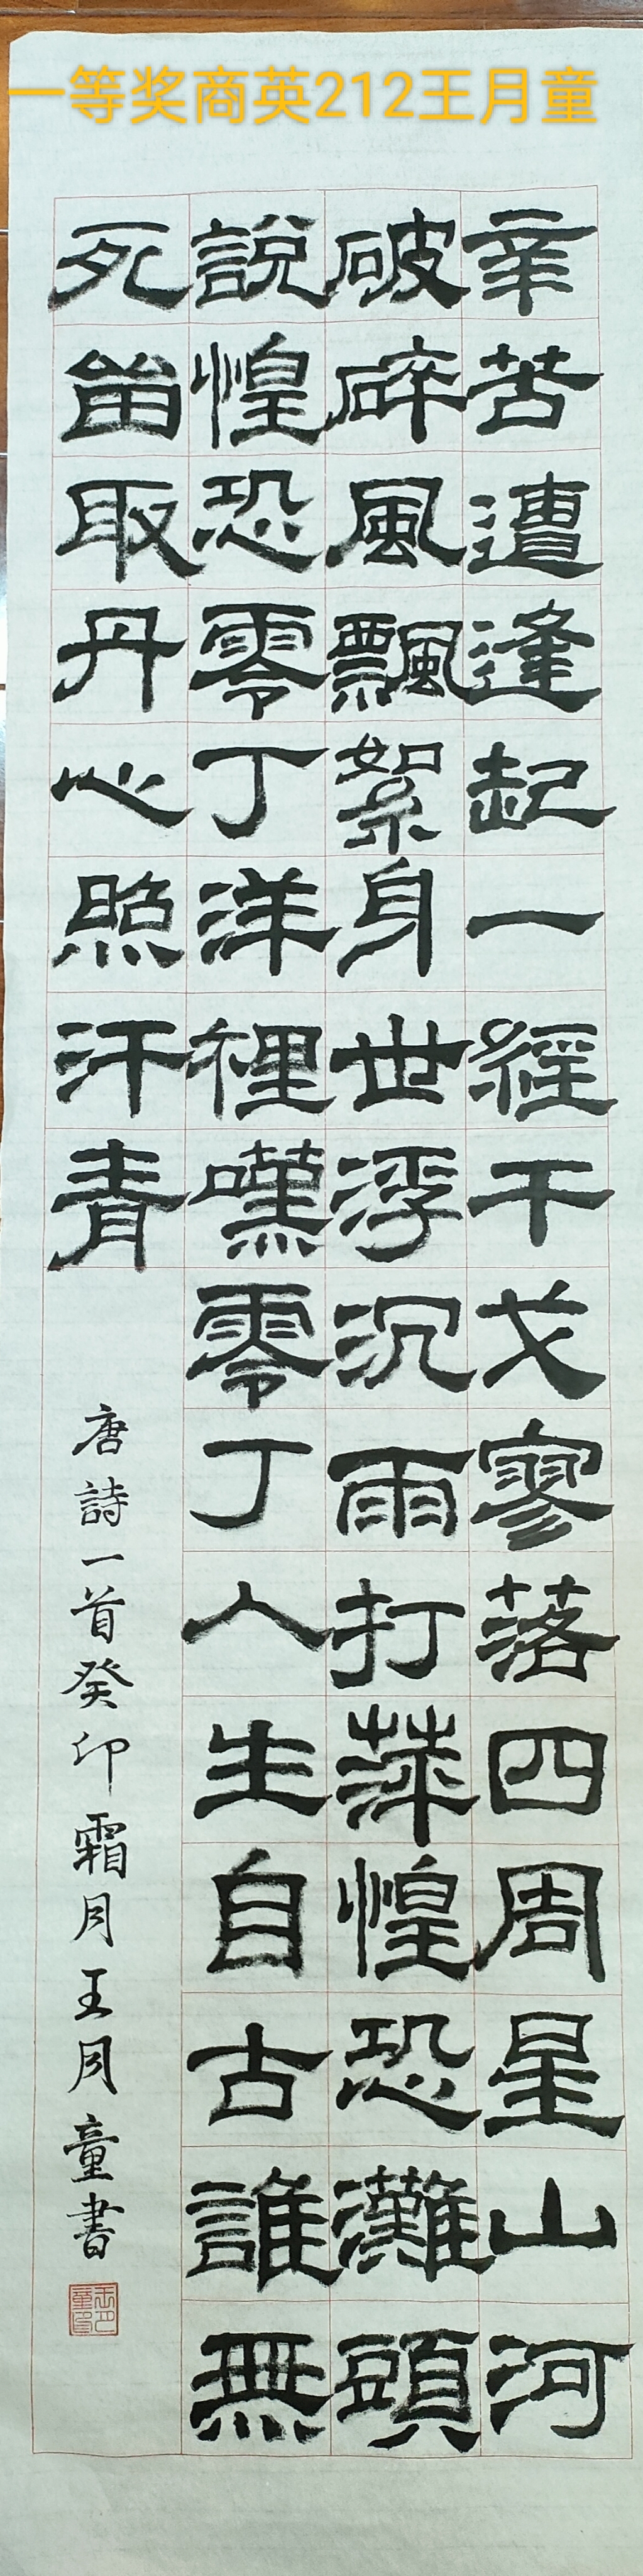 一等奖商英212王月童
辛苦遭逢起一經干戈寥落四周星山河
破碎風飄絮身世浮沉雨打萍惶恐灘頭
說惶恐零丁洋裡嘆零丁人生自古誰無
死留取丹心照汗青
唐詩一首癸卯霜月王月童書